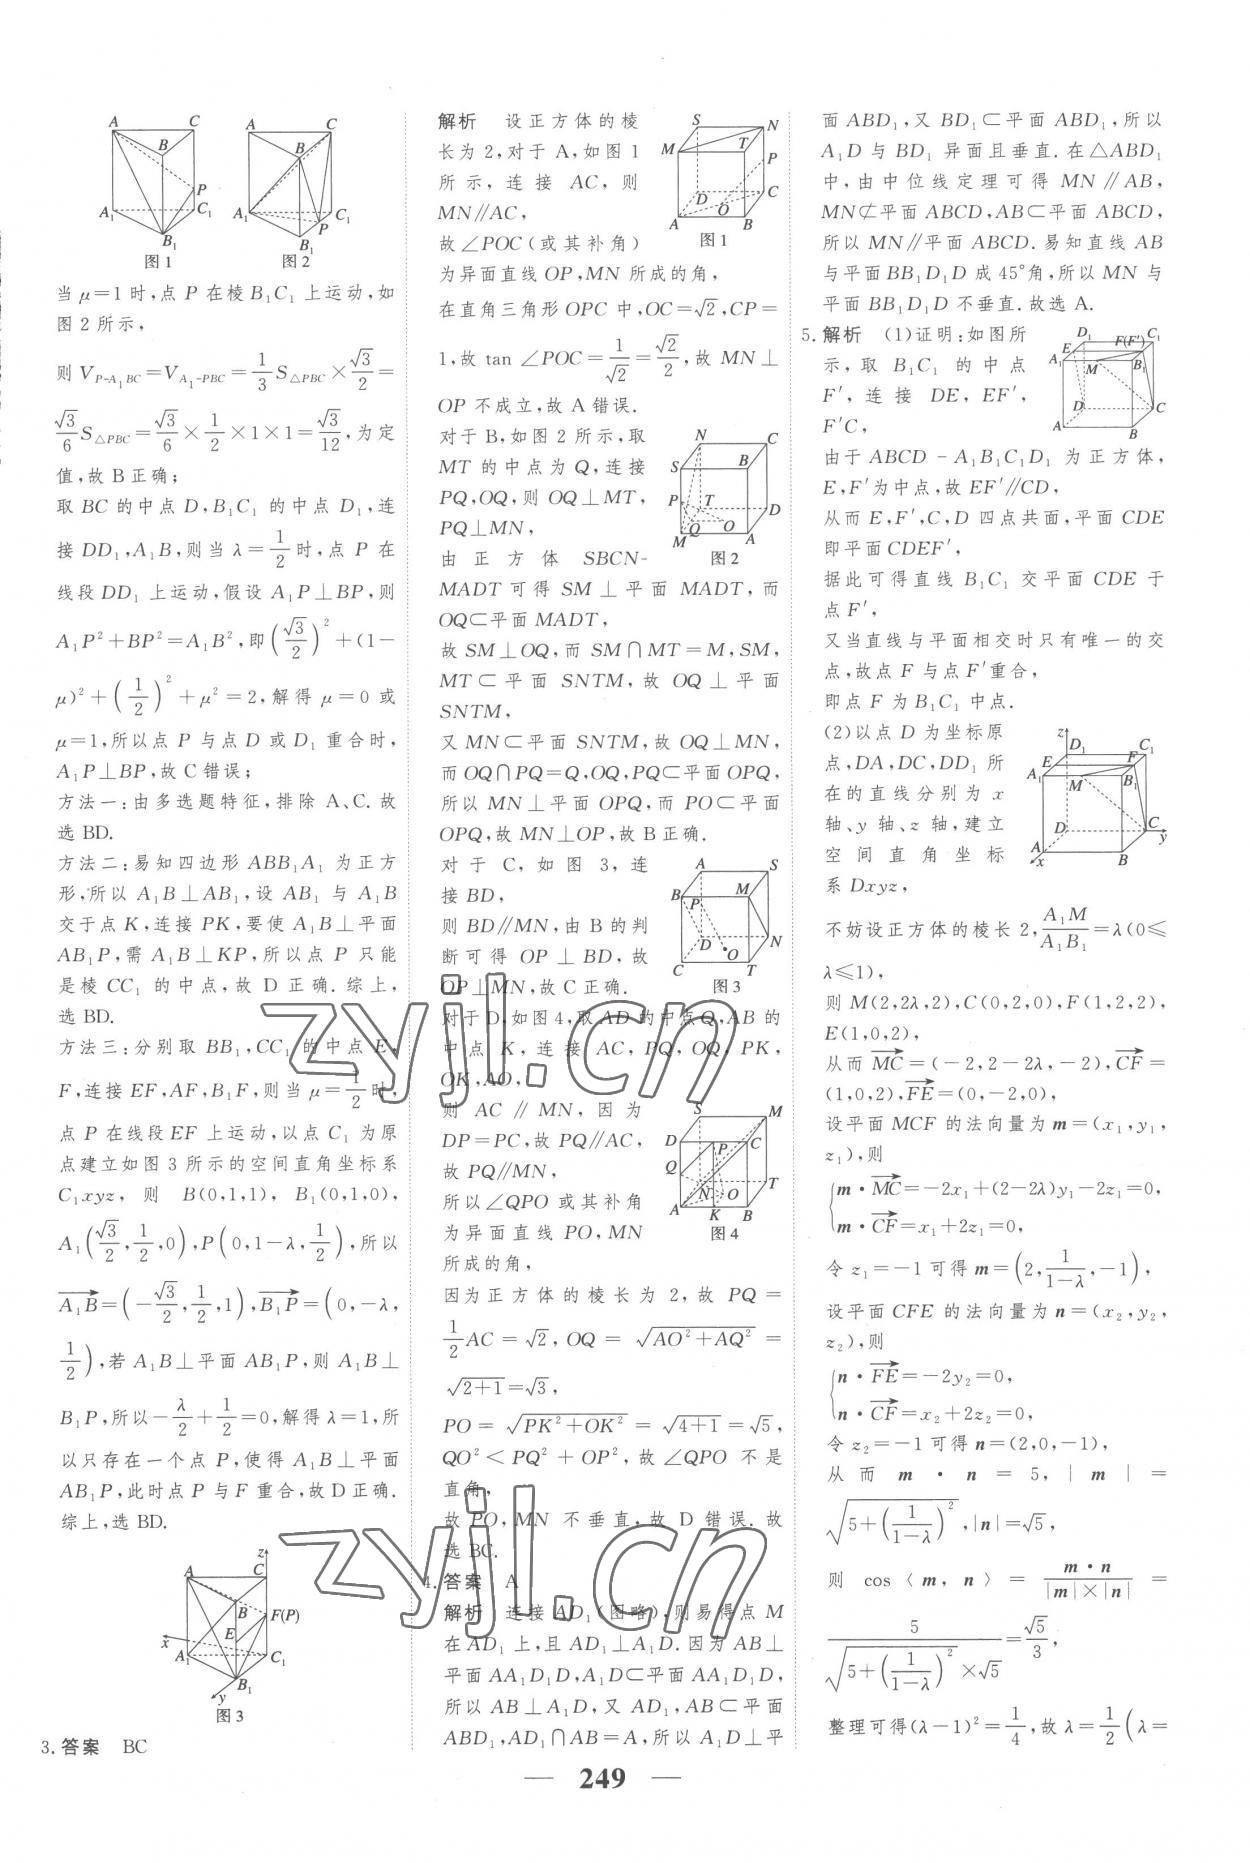 图1
图2
当 μ=1 时,点 P 在棱 B₁C₁ 上运动,如
图 2 所示,
则 V_{P-A₁BC}=V_{A₁-PBC}=\frac{1}{3}S_{△PBC}×\frac{\sqrt{3}}{2}=
\frac{\sqrt{3}}{6}S_{△PBC}=\frac{\sqrt{3}}{6}×\frac{1}{2}×1×1=\frac{\sqrt{3}}{12},为定
值,故 B 正确;
取 BC 的中点 D,B₁C₁ 的中点 D₁,连
接 DD₁,A₁B,则当 λ=\frac{1}{2}时,点 P 在
线段 DD₁ 上运动,假设 A₁P⊥BP,则
A₁P²+BP²=A₁B²,即(\frac{\sqrt{3}}{2})²+(1-
μ)²+(\frac{1}{2})²+μ²=2,解得 μ=0 或
μ=1,所以点 P 与点 D 或 D₁ 重合时,
A₁P⊥BP,故 C 错误;
方法一:由多选题特征,排除 A、C. 故
选 BD.
方法二:易知四边形 ABB₁A₁ 为正方
形,所以 A₁B⊥AB₁,设 AB₁ 与 A₁B
交于点 K,连接 PK,要使 A₁B⊥平面
AB₁P,需 A₁B⊥KP,所以点 P 只能
是棱 CC₁ 的中点,故 D 正确. 综上,
选 BD.
方法三:分别取 BB₁,CC₁ 的中点 E,
F,连接 EF,AF,B₁F,则当 μ=\frac{1}{2}时,
点 P 在线段 EF 上运动,以点 C₁ 为原
点建立如图 3 所示的空间直角坐标系
C₁xyz, 则 B(0,1,1), B₁(0,1,0),
A₁(\frac{\sqrt{3}}{2},\frac{1}{2},0),P(0,1-λ,\frac{1}{2}),所以
\overrightarrow{A₁B}=(-\frac{\sqrt{3}}{2},\frac{1}{2},1),\overrightarrow{B₁P}=(0,-λ,
\frac{1}{2}),若 A₁B⊥平面 AB₁P,则 A₁B⊥
B₁P,所以-\frac{λ}{2}+\frac{1}{2}=0,解得 λ=1,所
以只存在一个点 P,使得 A₁B⊥平面
AB₁P,此时点 P 与 F 重合,故 D 正确.
综上,选 BD.
图3
3. 答案 BC
解析 设正方体的棱
长为 2,对于 A,如图 1
所示,连接 AC,则
MN∥AC,
故∠POC(或其补角)
图1
为异面直线 OP,MN 所成的角,
在直角三角形 OPC 中,OC=√2,CP=
1,故 tan ∠POC=\frac{1}{\sqrt{2}}=\frac{\sqrt{2}}{2},故 MN⊥
OP 不成立,故 A 错误.
对于 B,如图 2 所示,取
MT 的中点为 Q,连接
PQ,OQ,则 OQ⊥MT,
PQ⊥MN,
由正方体 SBCN-
图2
MADT 可得 SM⊥平面 MADT,而
OQ⊂平面 MADT,
故 SM⊥OQ,而 SM∩MT=M,SM,
MT⊂平面 SNTM,故 OQ⊥平面
SNTM,
又 MN⊂平面 SNTM,故 OQ⊥MN,
而 OQ∩PQ=Q,OQ,PQ⊂平面 OPQ,
所以 MN⊥平面 OPQ,而 PO⊂平面
OPQ,故 MN⊥OP,故 B 正确.
对于 C,如图 3,连
接 BD,
则 BD∥MN,由 B 的判
断可得 OP⊥BD,故
OP⊥MN,故 C 正确.
图3
对于 D,如图 4,取 AD 的中点 Q,AB 的
中点 K,连接 AC,PQ,OQ,PK,
OK,AO,
则 AC∥MN,因为
DP=PC,故 PQ∥AC,
故 PQ∥MN,
所以∠QPO 或其补角
为异面直线 PO,MN
图4
所成的角,
因为正方体的棱长为 2,故 PQ=
\frac{1}{2}AC=√2,OQ=\sqrt{AO²+AQ²}=
\sqrt{2+1}=√3,
PO=\sqrt{PK²+OK²}=\sqrt{4+1}=√5,
QO²<PQ²+OP²,故∠QPO 不是
直角,
故 PO,MN 不垂直,故 D 错误. 故
选 BC.
4. 答案 A
解析 连接 AD₁(图略),则易得点 M
在 AD₁ 上,且 AD₁⊥A₁D. 因为 AB⊥
平面 AA₁D₁D,A₁D⊂平面 AA₁D₁D,
所以 AB⊥A₁D,又 AD₁,AB⊂平面
ABD₁,AD₁∩AB=A,所以 A₁D⊥平
面 ABD₁,又 BD₁⊂平面 ABD₁,所以
A₁D 与 BD₁ 异面且垂直. 在△ABD₁
中,由中位线定理可得 MN∥AB,
MN⊄平面 ABCD,AB⊂平面 ABCD,
所以 MN∥平面 ABCD. 易知直线 AB
与平面 BB₁D₁D 成 45°角,所以 MN 与
平面 BB₁D₁D 不垂直. 故选 A.
5. 解析 (1)证明:如图所
示,取 B₁C₁ 的中点
F′,连接 DE,EF′,
F′C,
由于 ABCD-A₁B₁C₁D₁ 为正方体,
E,F′为中点,故 EF′∥CD,
从而 E,F′,C,D 四点共面,平面 CDE
即平面 CDEF′,
据此可得直线 B₁C₁ 交平面 CDE 于
点 F′,
又当直线与平面相交时只有唯一的交
点,故点 F 与点 F′重合,
即点 F 为 B₁C₁ 中点.
(2)以点 D 为坐标原
点,DA,DC,DD₁ 所
在的直线分别为 x
轴、y 轴、z 轴,建立
空间直角坐标
系 Dxyz,
不妨设正方体的棱长 2,\frac{A₁M}{A₁B₁}=λ(0≤
λ≤1),
则 M(2,2λ,2),C(0,2,0),F(1,2,2),
E(1,0,2),
从而 \overrightarrow{MC}=(-2,2-2λ,-2),\overrightarrow{CF}=
(1,0,2),\overrightarrow{FE}=(0,-2,0),
设平面 MCF 的法向量为 m=(x₁,y₁,
z₁),则
{m·\overrightarrow{MC}=-2x₁+(2-2λ)y₁-2z₁=0,
m·\overrightarrow{CF}=x₁+2z₁=0,
令 z₁=-1 可得 m=(2,\frac{1}{1-λ},-1),
设平面 CFE 的法向量为 n=(x₂,y₂,
z₂),则
{n·\overrightarrow{FE}=-2y₂=0,
n·\overrightarrow{CF}=x₂+2z₂=0,
令 z₂=-1 可得 n=(2,0,-1),
从而 m·n=5,|m|=
\sqrt{5+(\frac{1}{1-λ})²},|n|=√5,
则 cos〈m,n〉=\frac{m·n}{|m|×|n|}=
\frac{5}{\sqrt{5+(\frac{1}{1-λ})²}×\sqrt{5}}=\frac{\sqrt{5}}{3},
整理可得(λ-1)²=\frac{1}{4},故 λ=\frac{1}{2}(λ=
— 249 —
zyjl.cn
zyjl.cn